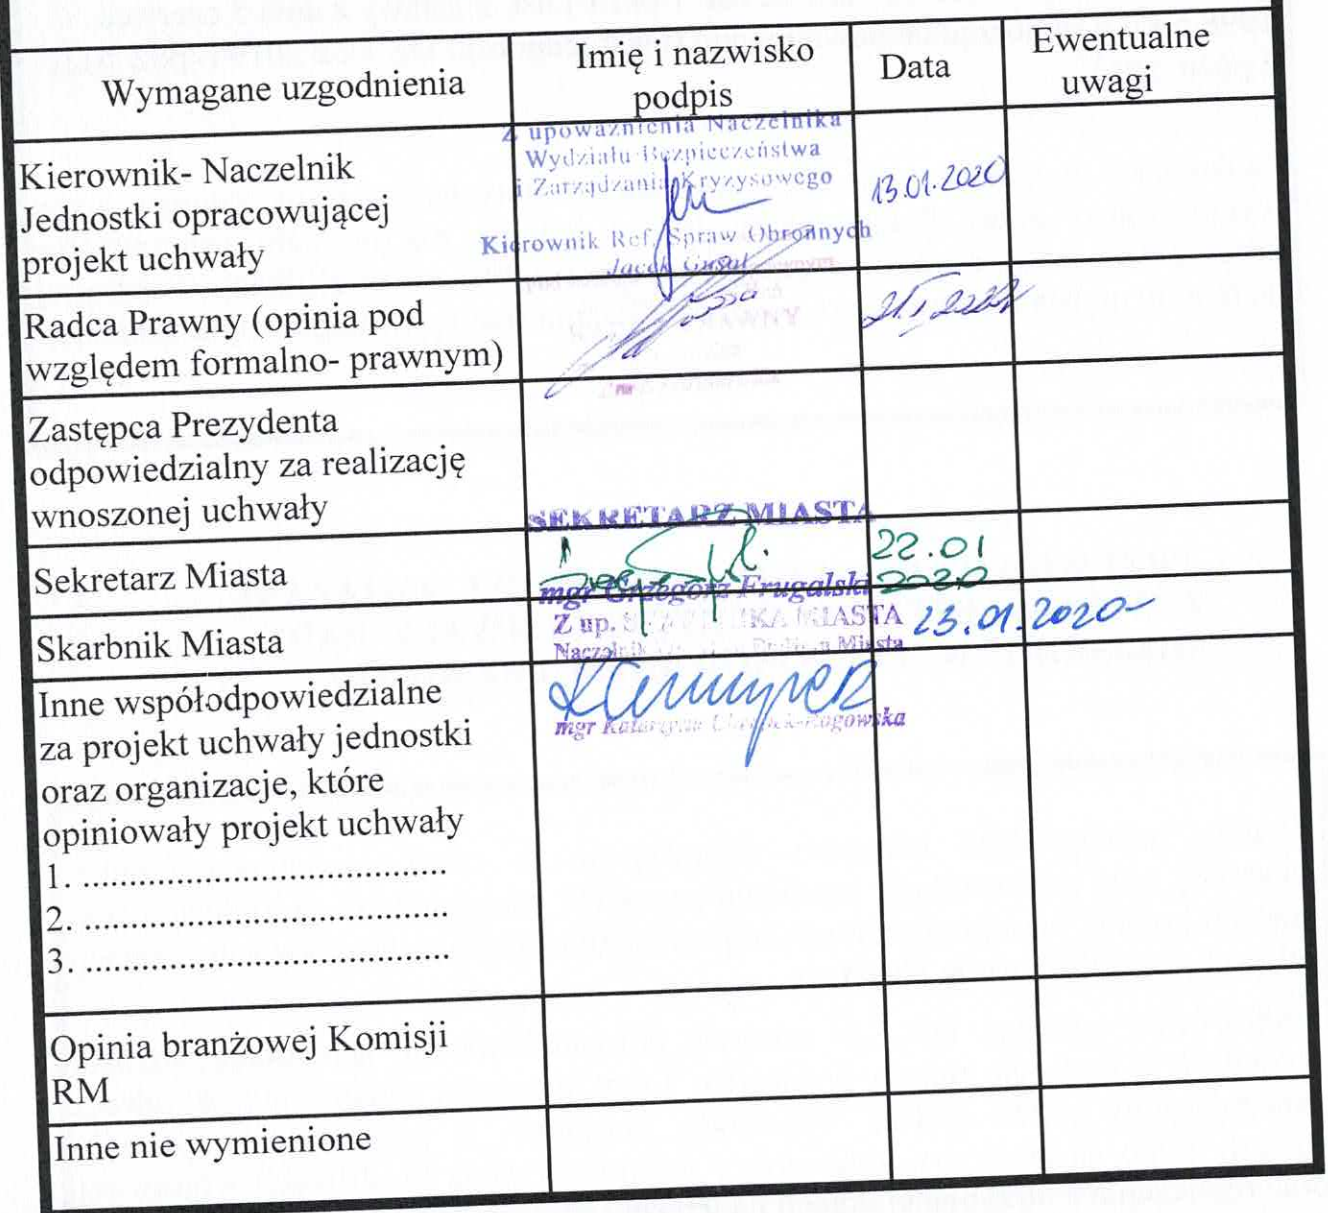 Wymagane uzgodnienia
Imię i nazwisko
podpis
Data
Ewentualne
uwagi
Kierownik- Naczelnik
Jednostki opracowującej
projekt uchwały
Z upoważnienia Naczelnika
Wydziału Bezpieczeństwa
i Zarządzania Kryzysowego
Kierownik Ref. Spraw Obronnych
Jacek
13.01.2020
Radca Prawny (opinia pod
względem formalno- prawnym)
Zastępca Prezydenta
odpowiedzialny za realizację
wnoszonej uchwały
Sekretarz Miasta
SEKRETARZ MIASTA
mgr Grzegorz Frugalski
22.01
2020
Skarbnik Miasta
Z up. MIASTA
Naczelnik Miasta
mgr Katarzyna
23.01.2020
Inne współodpowiedzialne
za projekt uchwały jednostki
oraz organizacje, które
opiniowały projekt uchwały
1. ....................................
2. ....................................
3. ....................................
Opinia branżowej Komisji
RM
Inne nie wymienione